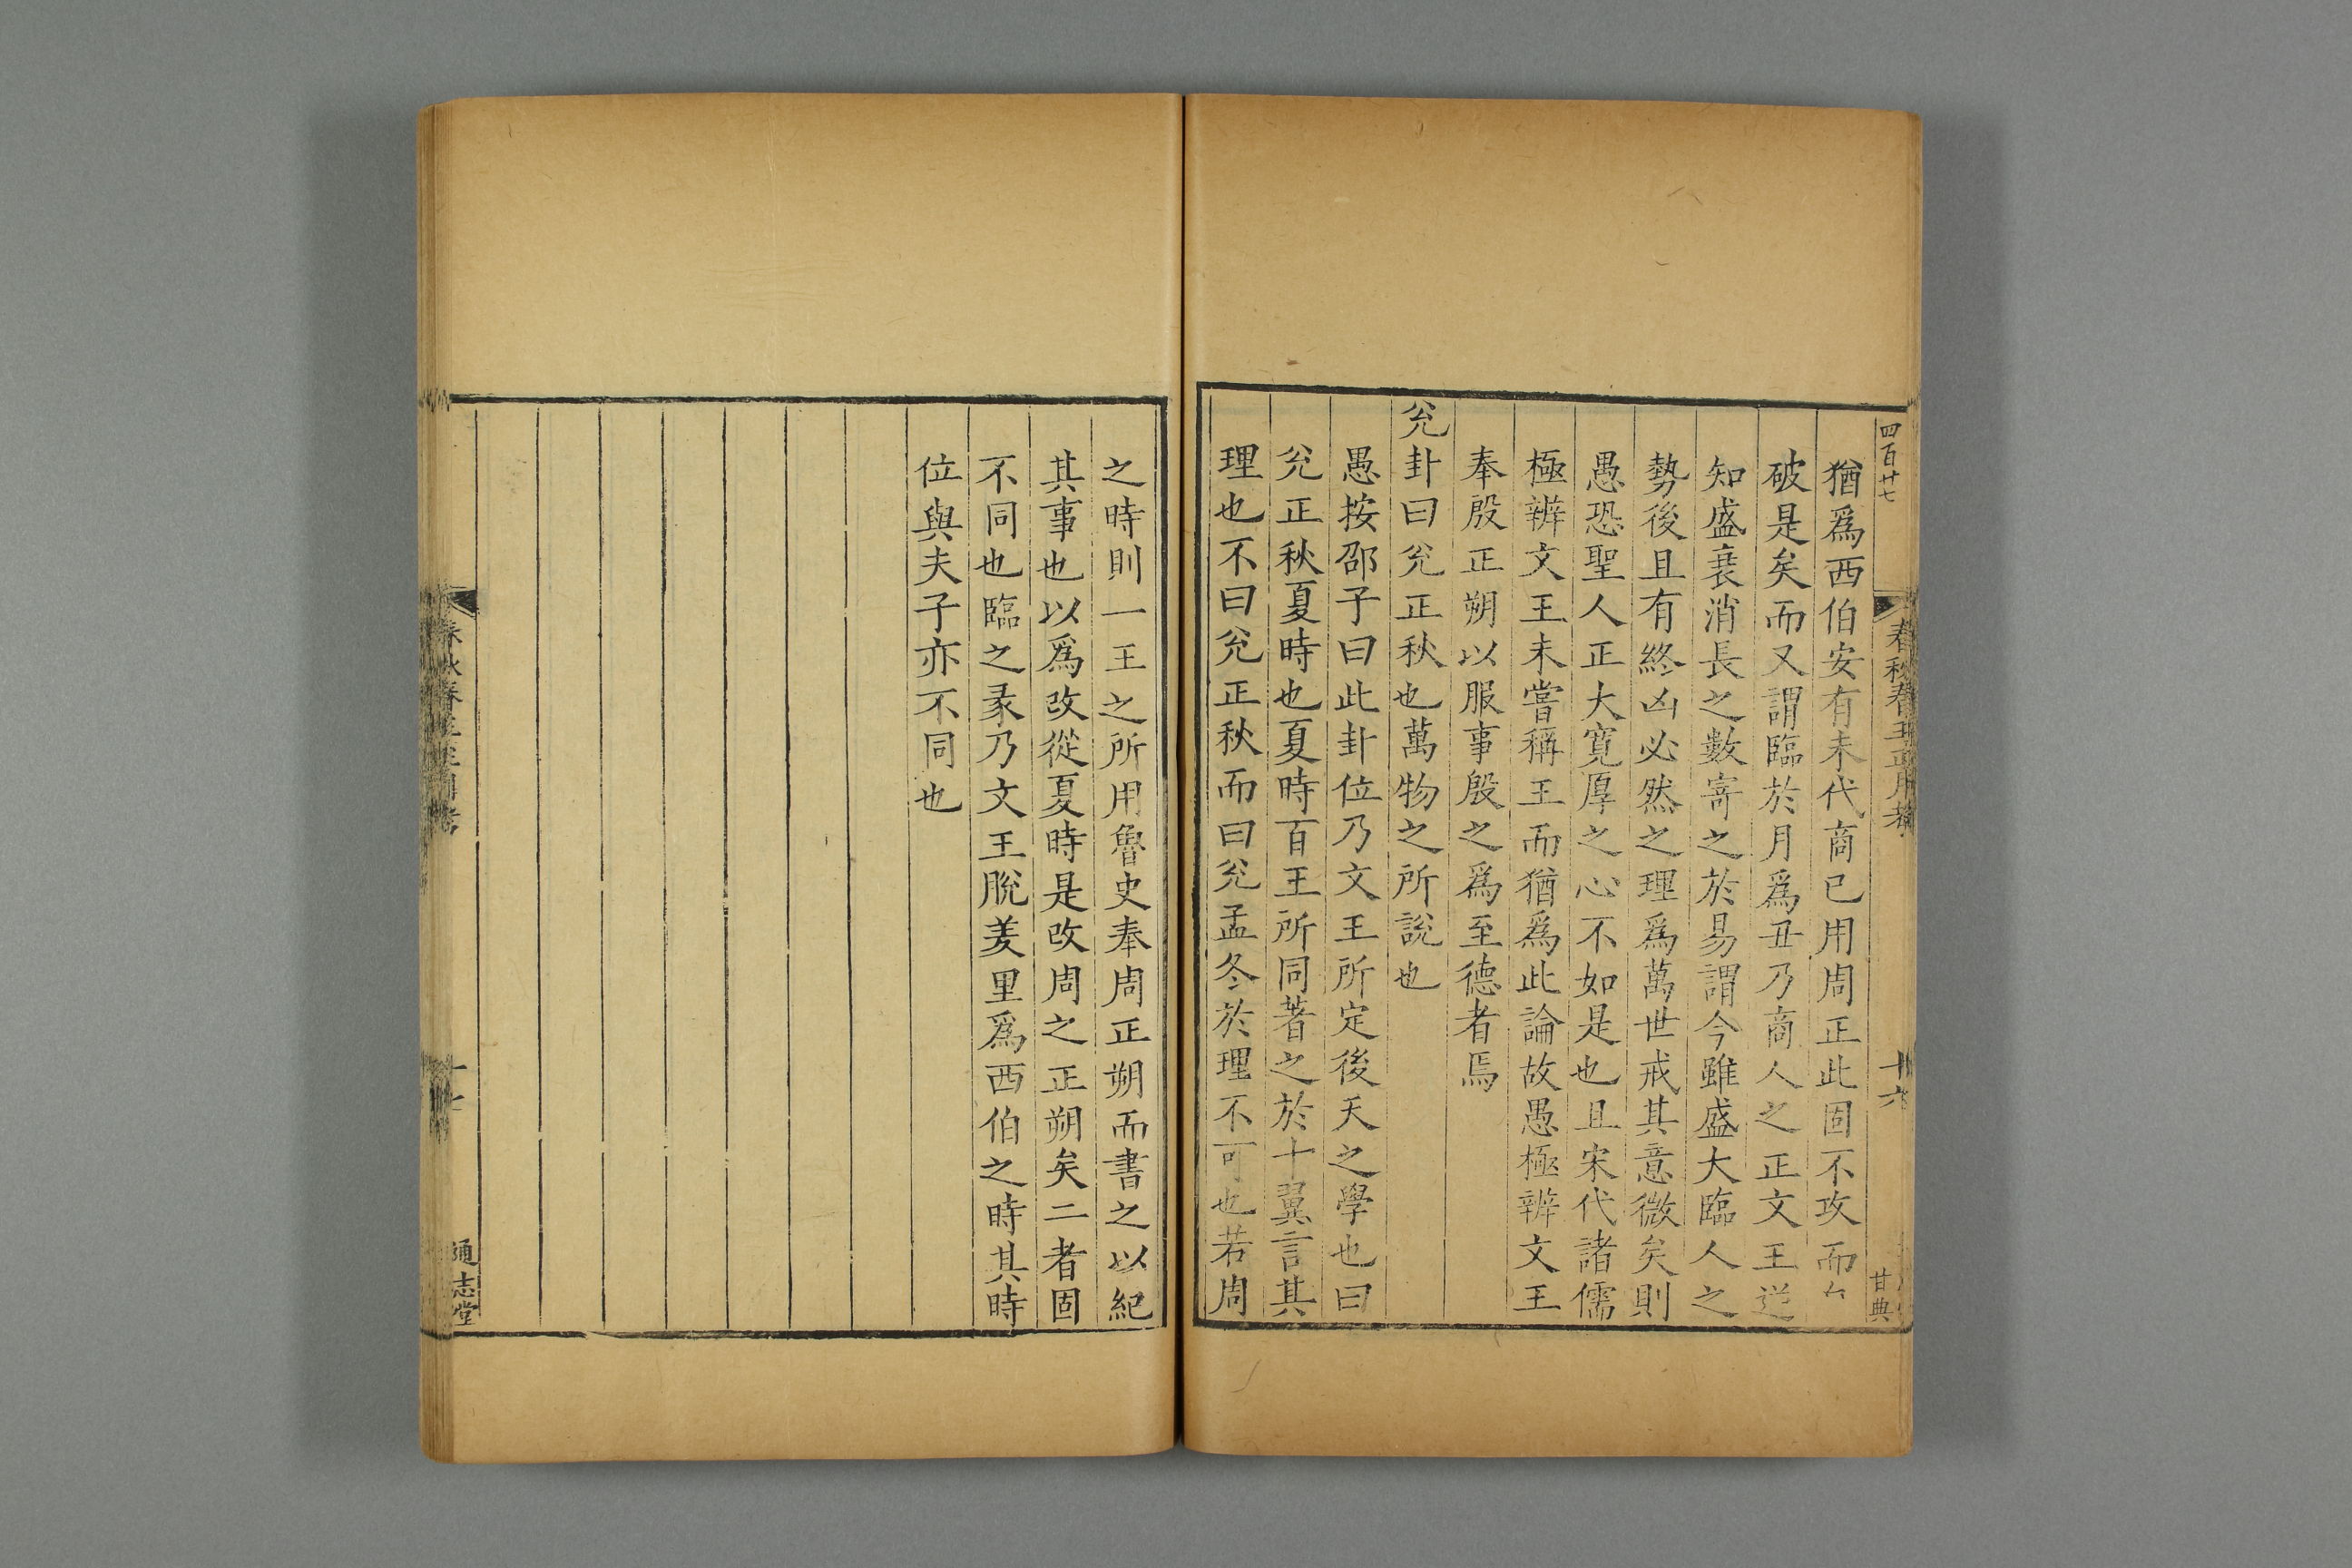 四百廿七
春秋春王正月考
十六
甘典
猶爲西伯安有未代商已用周正此固不攻而
破是矣而又謂臨於月爲丑乃商人之正文王逆
知盛衰消長之數寄之於易謂今雖盛大臨人之
勢後且有終凶必然之理爲萬世戒其意微矣則
愚恐聖人正大寛厚之心不如是也且宋代諸儒
極辨文王未嘗稱王而猶爲此論故愚極辨文王
奉殷正朔以服事殷之爲至德者焉
兊卦曰兊正秋也萬物之所說也
愚按邵子曰此卦位乃文王所定後天之學也曰
兊正秋夏時也夏時百王所同著之於十翼言其
理也不曰兊正秋而曰兊孟冬於理不可也若周
之時則一王之所用魯史奉周正朔而書之以紀
其事也以爲改從夏時是改周之正朔矣二者固
不同也臨之彖乃文王脫羑里爲西伯之時其時
位與夫子亦不同也
春秋春王正月考
十七
通志堂